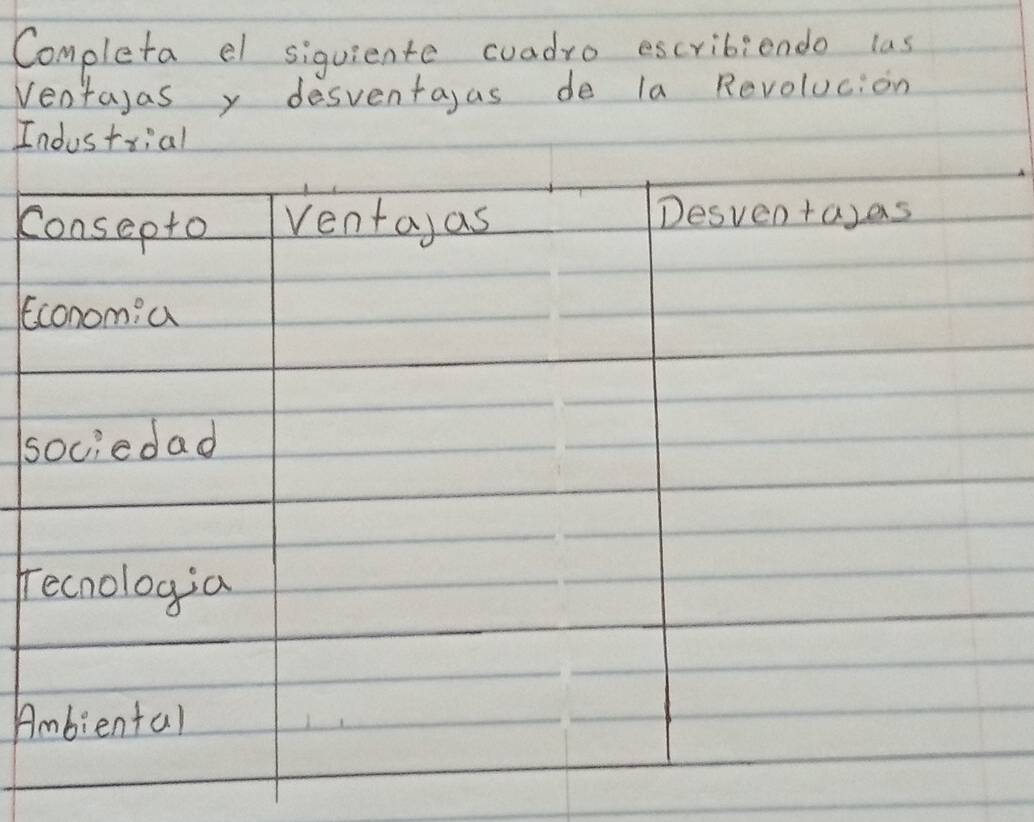 Completa el siguiente cuadro escribiendo las
Ventajas y desventajas de la Revolución
Industrial
Consepto Ventajas Desventajas
Economia
sociedad
Tecnologia
Ambiental